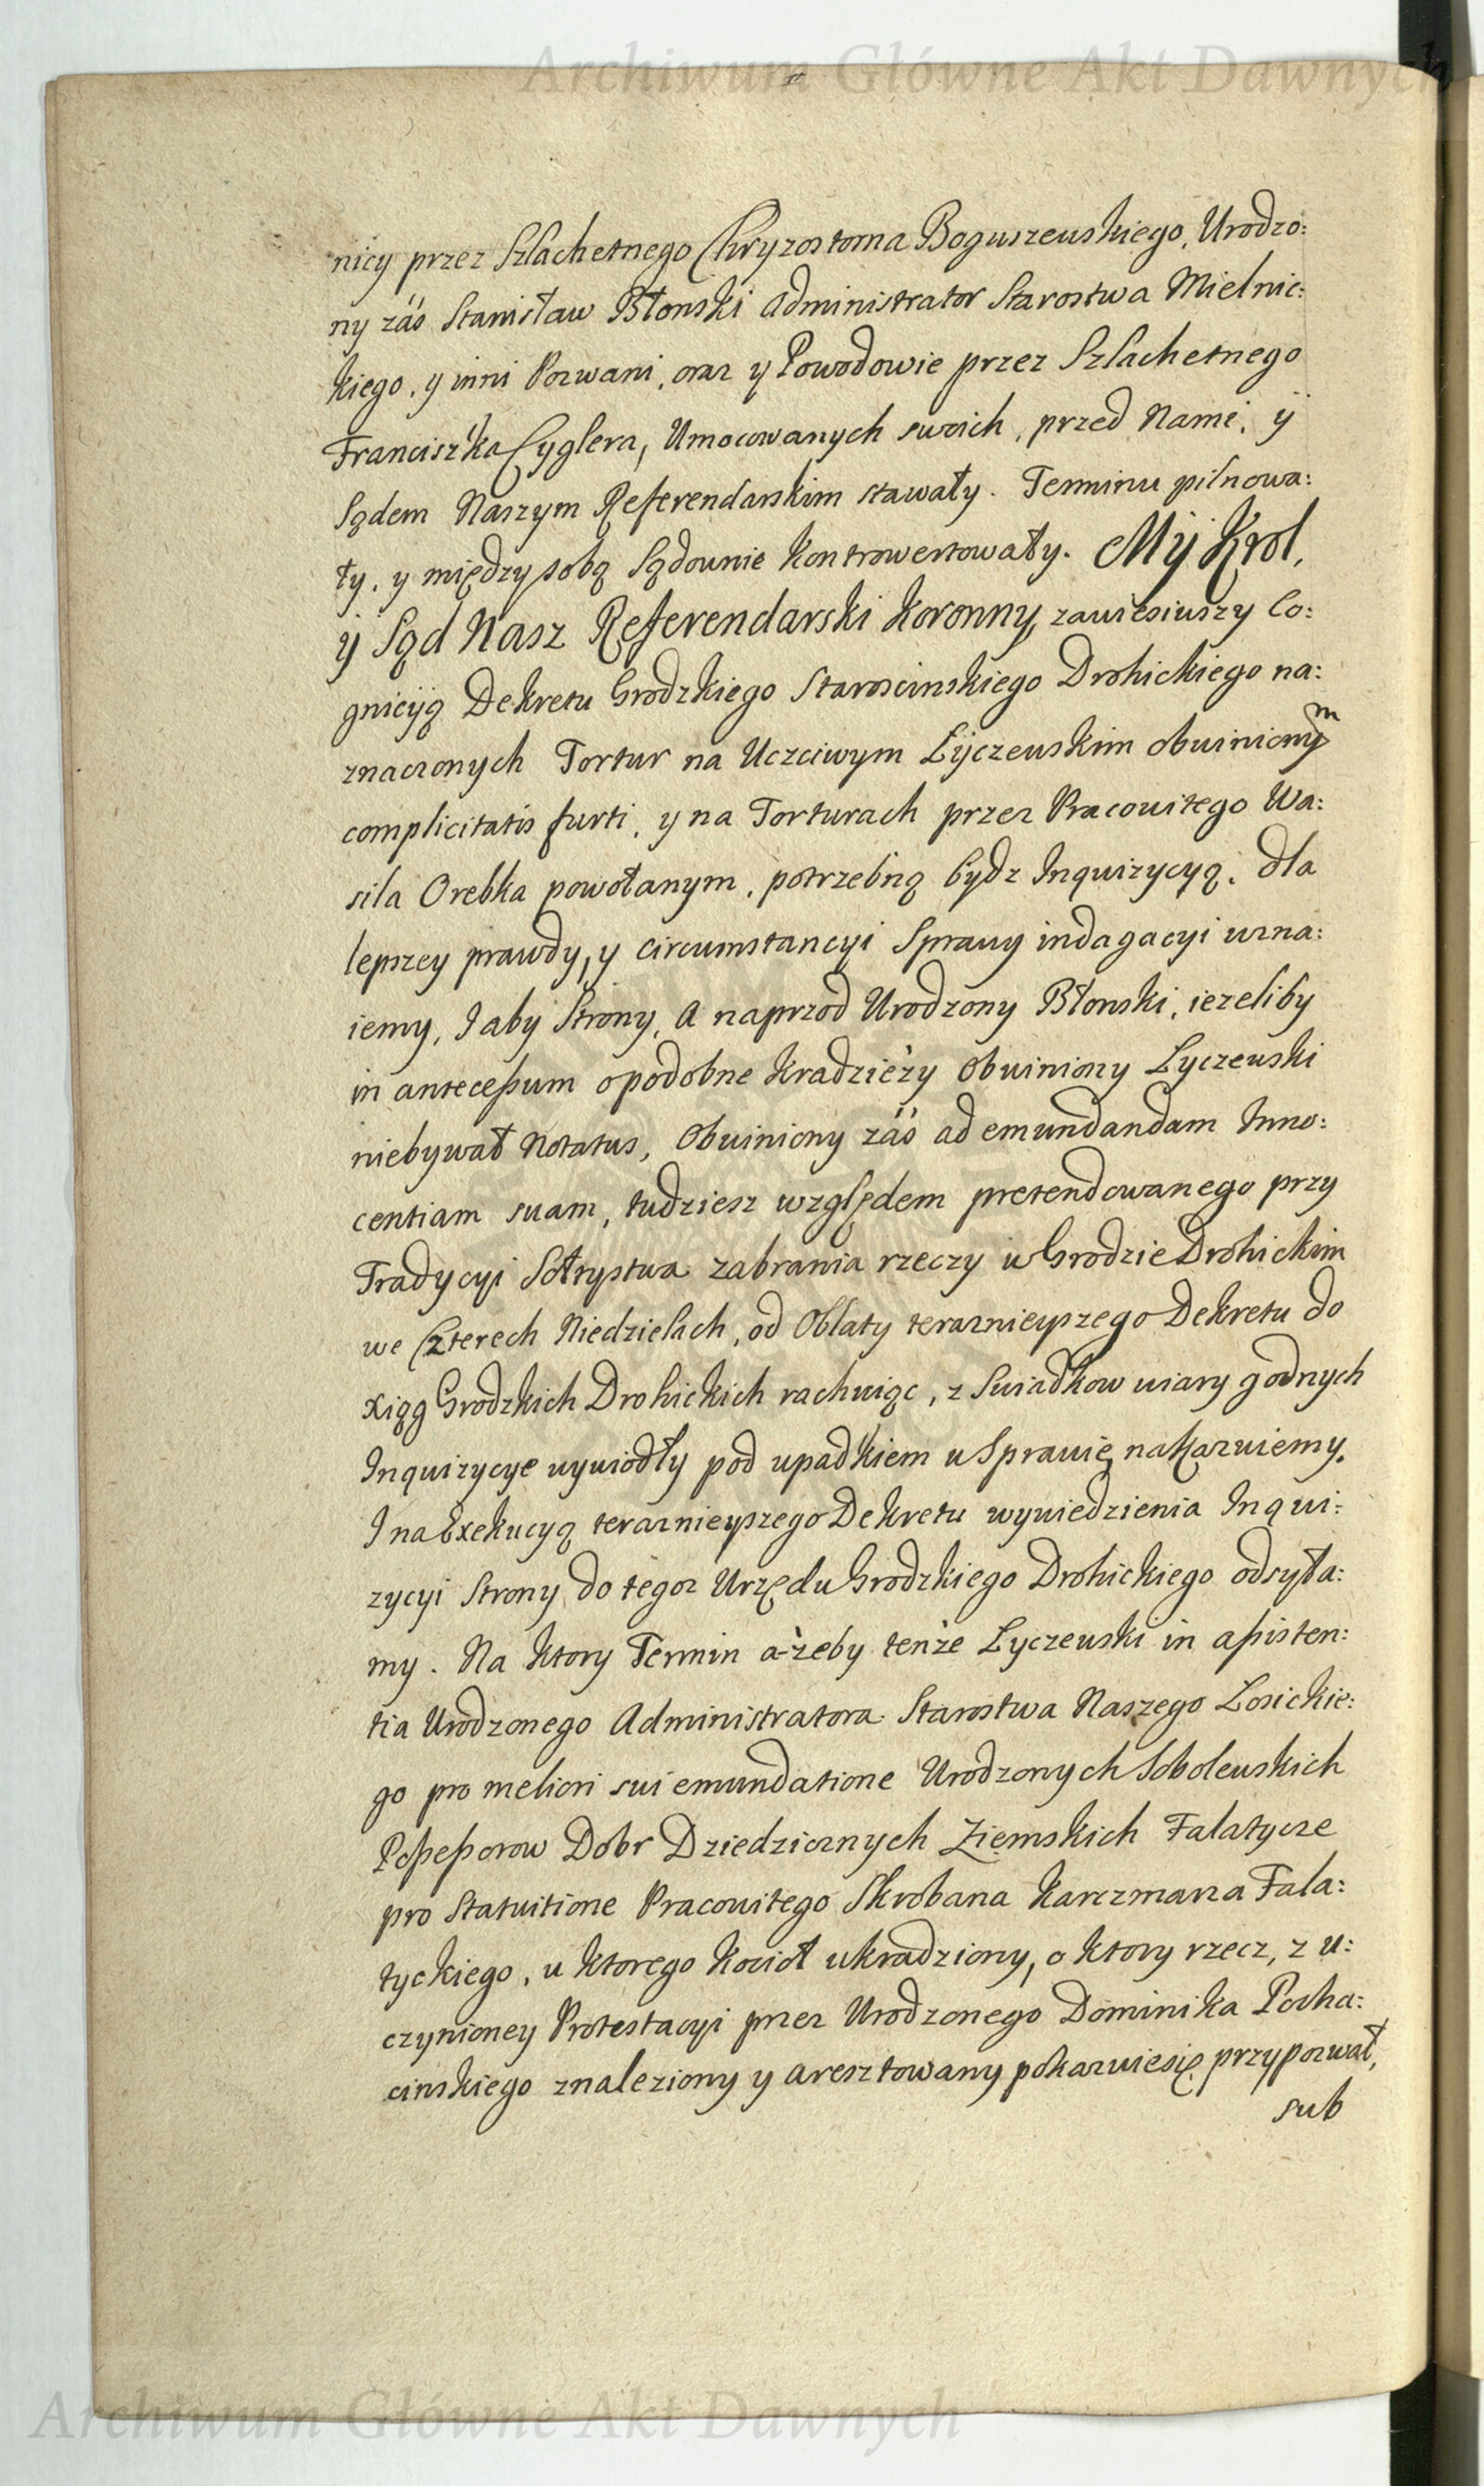 Archiwum Główne Akt Dawnych
nicy przez Szlachetnego Chryzostoma Boguszewskiego, Urodzo:
ny zaś Stanisław Błonski Administrator Starostwa Mielnic:
kiego, y inni Pozwani, oraz y Powodowie przez Szlachetnego
Franciszka Cyglera, Umocowanych swoich, przed Nami, ÿ
Sądem Naszym Referendarskim stawały. Terminu pilnowa:
ły, y między sobą Sądownie kontrowertowały. Mÿ Krol,
ÿ Sąd Nasz Referendarski Koronny, zawiesiwszy Co:
gnicyią Dekretu Grodzkiego Staroscinskiego Drohickiego na:
znaczonych Tortur na Uczciwym Łyczewskim obwinionym
complicitatis furti, y na Torturach przez Pracowitego Wa:
sila Orebka powołanym, potrzebną bydz Inquizycyą, dla
lepszey prawdy, y circumstancyi Sprawy indagacyi uzna:
iemy, I aby Strony, A naprzod Urodzony Błonski, iezeliby
in antecessum o podobne kradzieży Obwiniony Lyczewski
niebywał Notatus, Obwiniony zaś ad emundandam Inno:
centiam suam, tudziesz względem pretendowanego przy
Tradycyi Sołtystwa zabrania rzeczy w Grodzie Drohickim
we Czterech Niedzielach, od Oblaty terazniejszego Dekretu do
xiąg Grodzkich Drohickich rachuiąc, z Swiadkow wiary godnych
Inquizycye wywiodły pod upadkiem w Sprawie, nakazuiemy.
I na Exekucyą terazniejszego Dekretu wywiedzienia Inqui:
zycyi Strony do tegoz Urzędu Grodzkiego Drohickiego odsyła:
my. Na ktory Termin a-żeby tenże Lyczewski in assisten:
tia Urodzonego Administratora Starostwa Naszego Losickie:
go pro meliori sui emundatione Urodzonych Sobolewskich
Possessorow Dobr Dziedzicznych Ziemskich Falatycze
pro Statuitione Pracowitego Skrobana Karczmarza Fala:
tyckiego, u ktorego kocioł ukradziony, o ktory rzecz, z u:
czynioney Protestacyi przez Urodzonego Dominika Pocha:
cinskiego znaleziony y aresztowany pokazuiesię przypozwał,
sub
Archiwum Główne Akt Dawnych